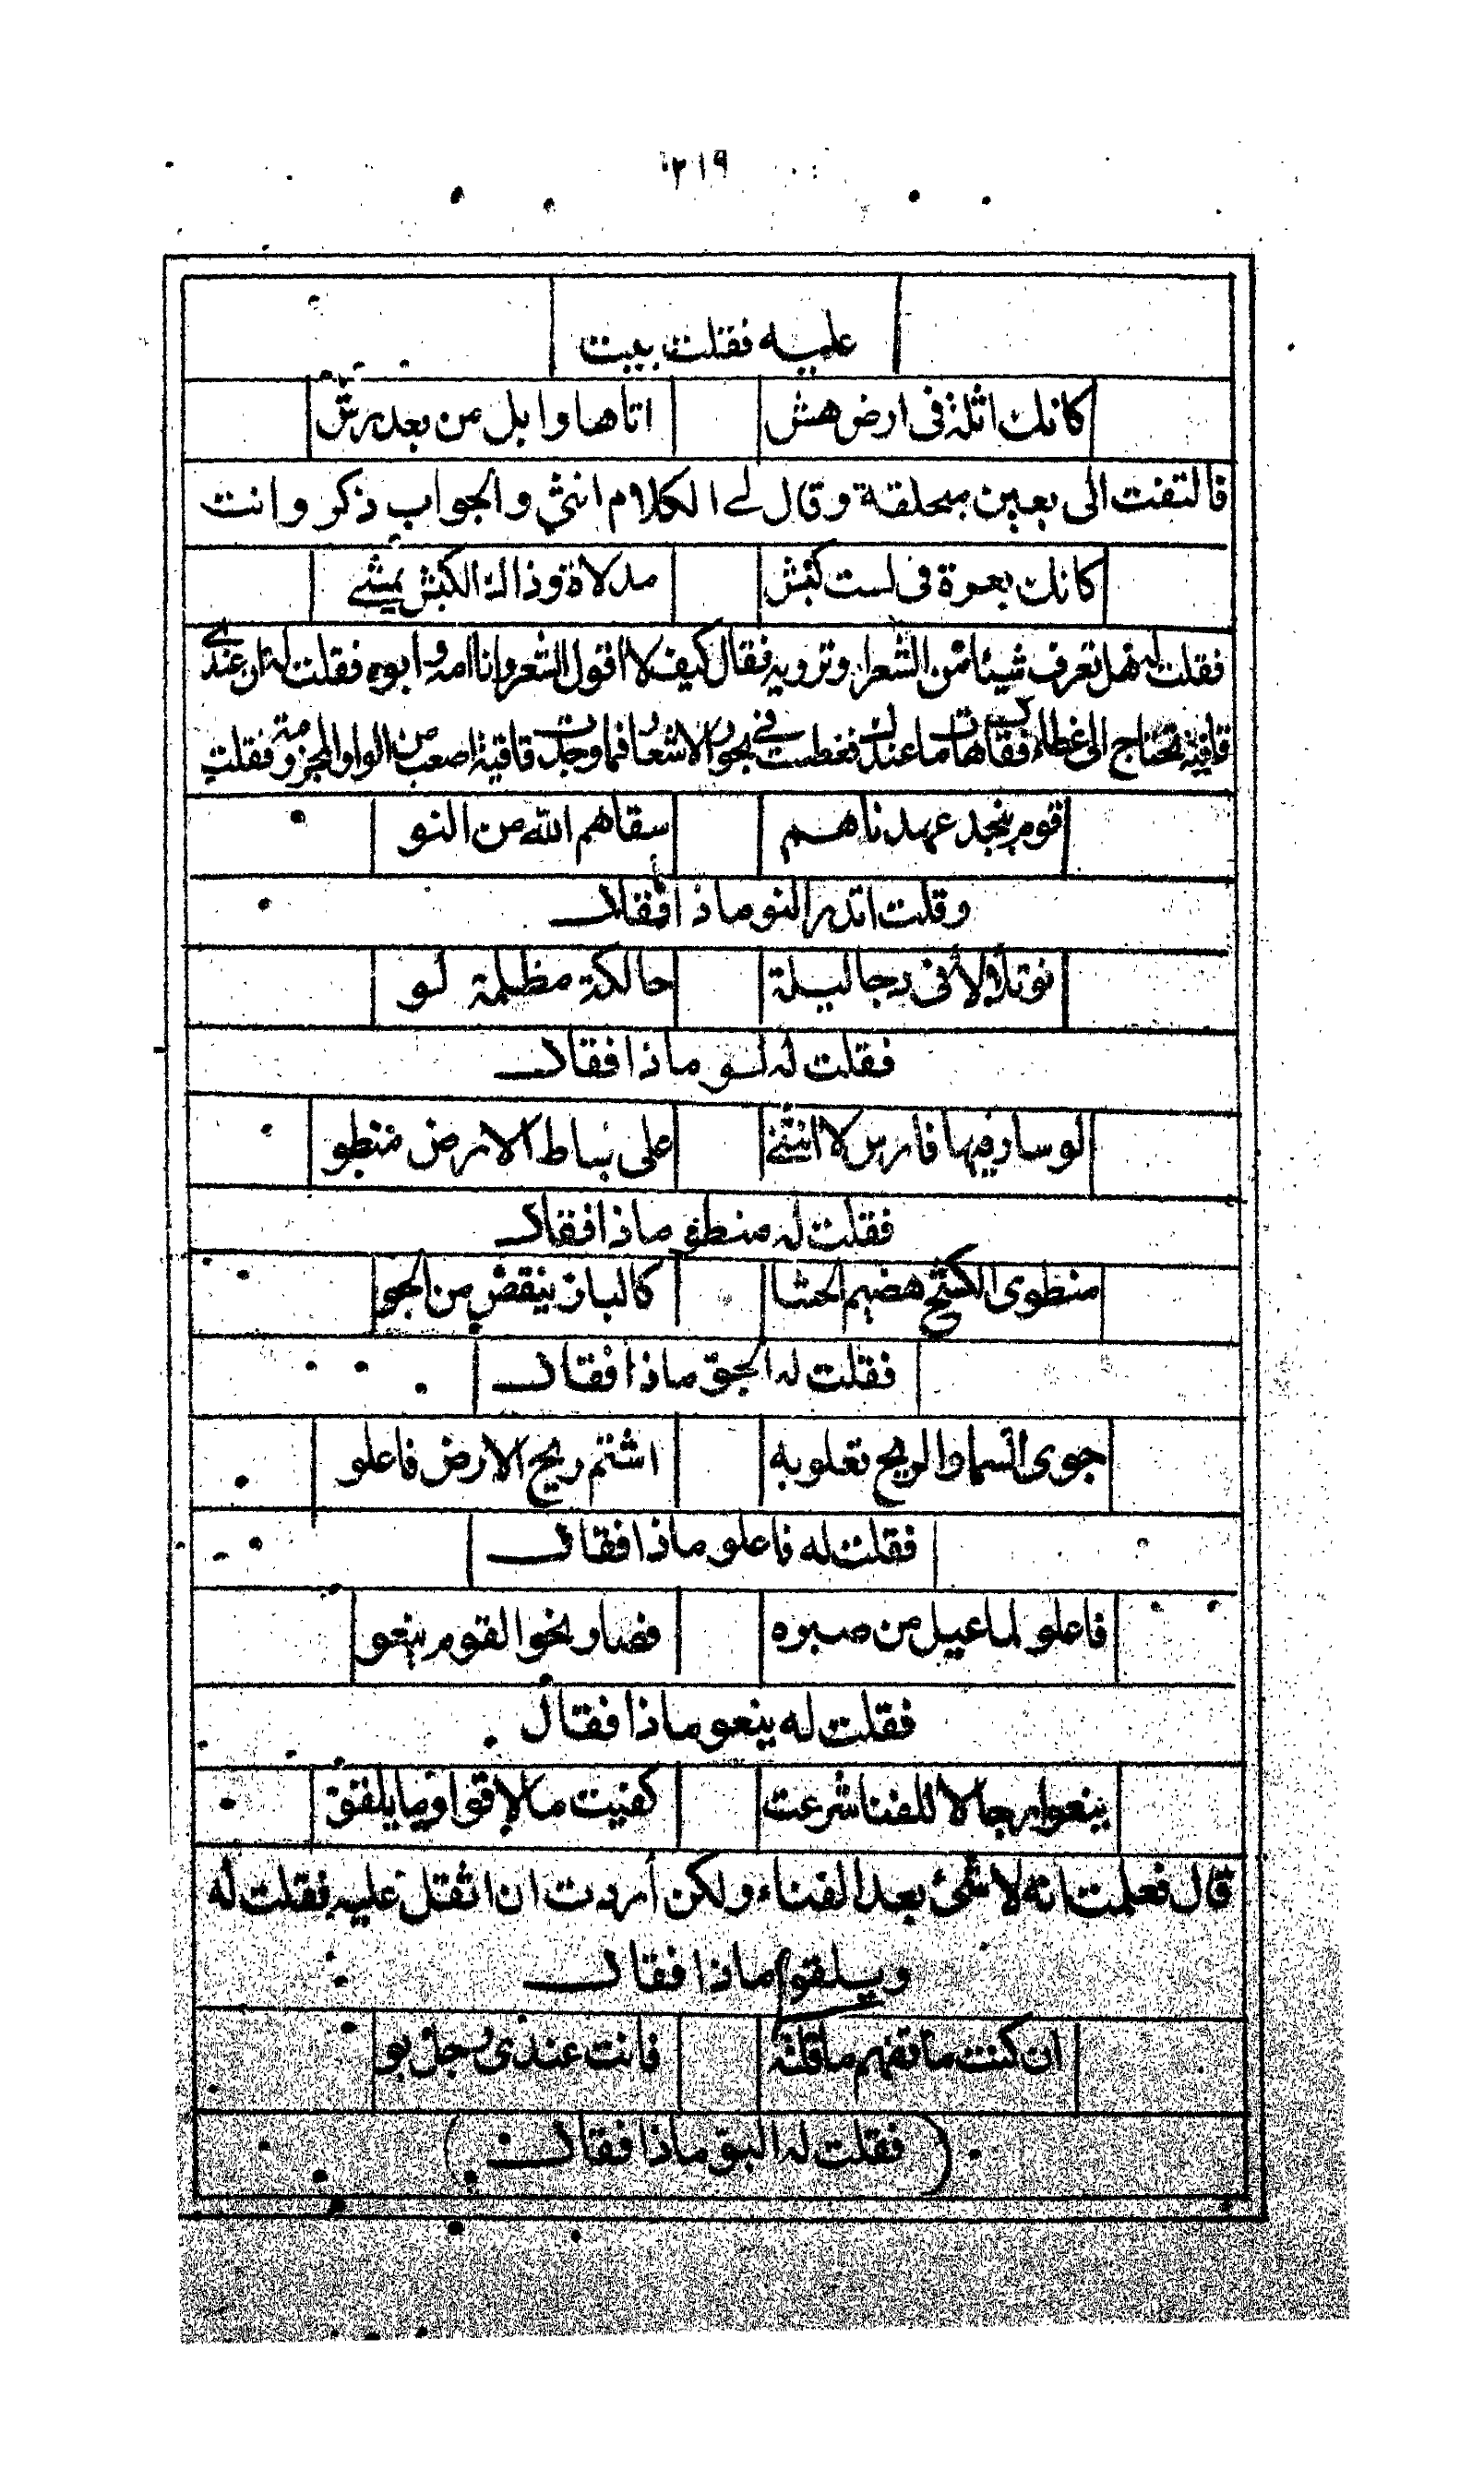 ٢١٩
عليه فقلت بيت
كانك اثلة فى ارض هش اتاها وابل من بعد رش
فالتفت الى بعين محلقة وقال لے الكلام انثى والجواب ذكر وانت
كانك بعرة فى لست كبش مدلاة وذاك الكبش يمشے
فقلت له هل تعرف شيئا من الشعر او ترويه فقال كيف لا اقول الشعر وانا امه وابوه فقلت له ان عندے
قافية تحتاج الى غطاء فقال هات ما عندك فغطست فے بحور الاشعار فما وجدت قافية اصعب من الواو المجزومة فقلت
قوم بنجد عهدناهم سقاهم الله من النو
وقلت اتدر النو ماذا فقال
نو تلألأ فى دجا ليلة حالكة مظلمة لو
فقلت له لو ماذا فقال
لو سار فيها فارس لا انثنے على بساط الارض منطو
فقلت له منطو ماذا فقال
منطوى الكشح هضيم الحشا كالباز ينقض من الجو
فقلت له الجو ماذا فقال
جوى السما والريح تعلو به اشتم ريح الارض فاعلو
فقلت له فاعلو ماذا فقال
فاعلو لما عيل من صبره فصار نحو القوم ينعو
فقلت له ينعو ماذا فقال
ينعو رجالا للفنا شرعت كفيت ما لاقوا وما يلقو
قال فعلمت انه لا شئ بعد الفناء ولكن أردت ان اثقل عليه فقلت له
ويلقو ماذا فقال
ان كنت ما تفهم ما قلته فانت عندى رجل بو
(فقلت له البو ماذا فقال)